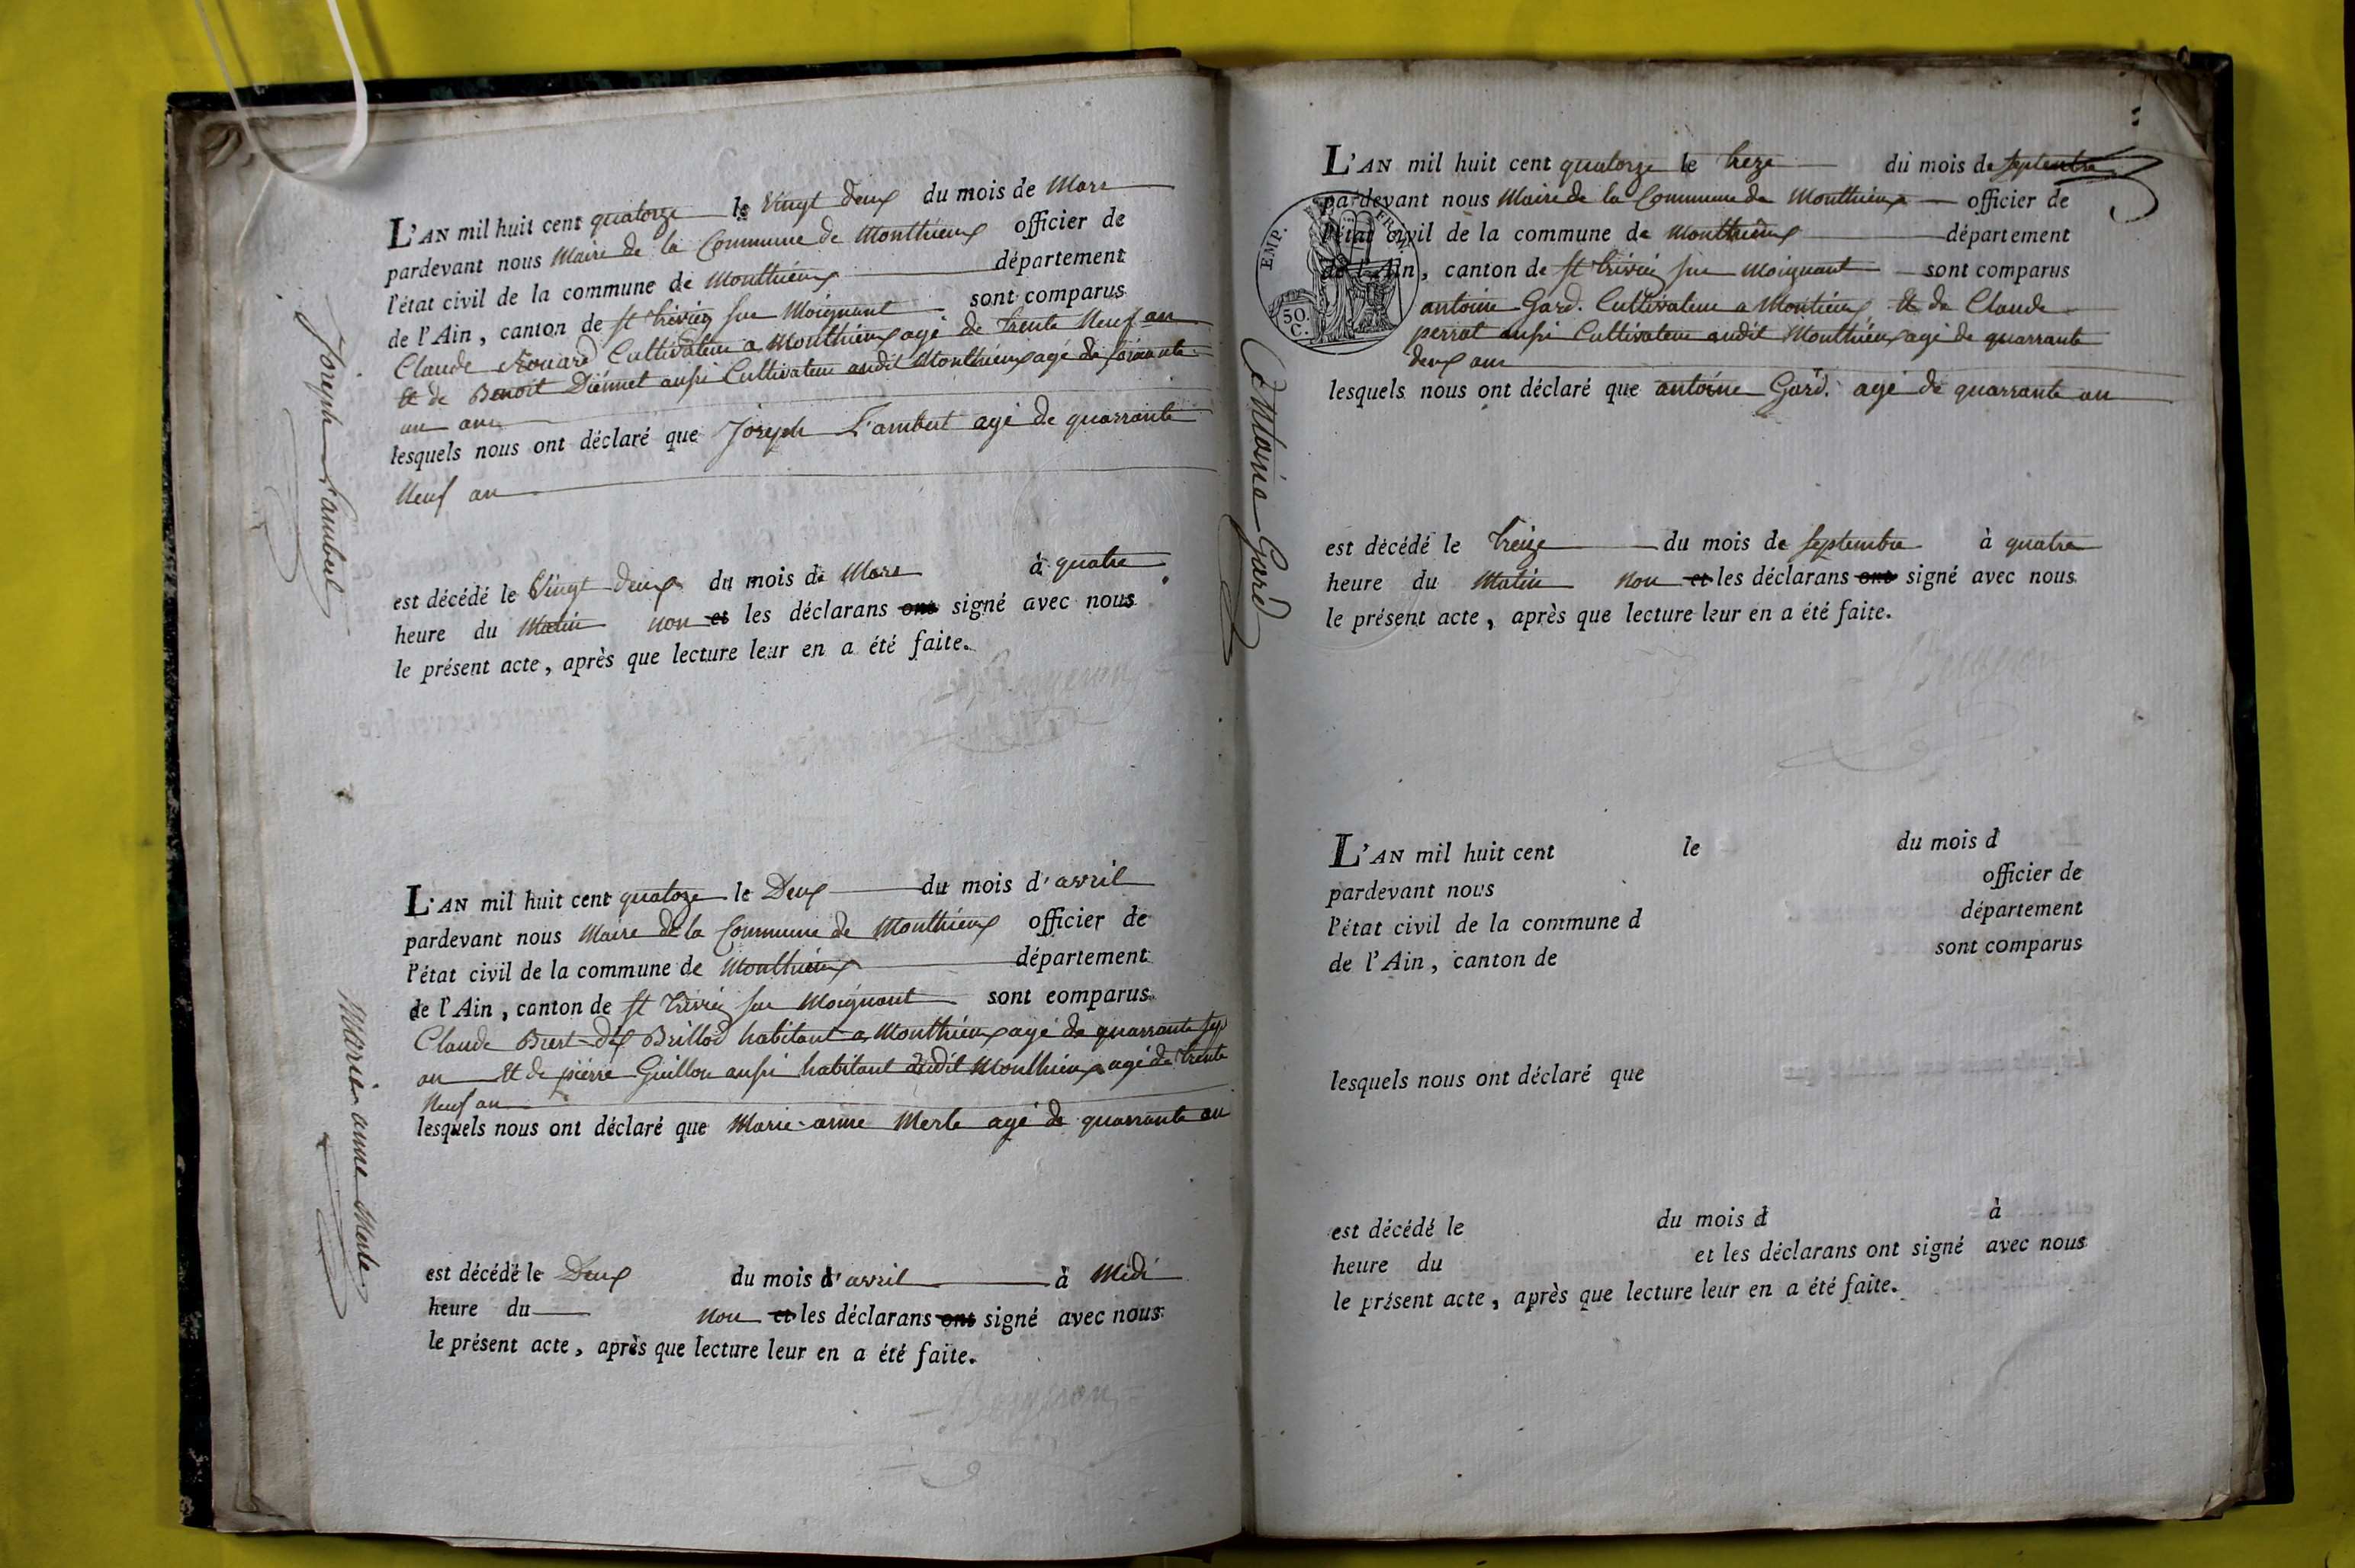 Joseph Lambert
L'AN mil huit cent quatorze le Vingt deux du mois de Mars
pardevant nous Maire de la Commune de Monthieux officier de
l'état civil de la commune de Monthieux département
de l'Ain, canton de st trivier sur Moignant sont comparus
Claude Cultivateur a Monthieux agé de trente Neuf an
Et de Benoit aussi Cultivateur audit Monthieux agé de soixante
un ans
lesquels nous ont déclaré que Joseph Lambert agé de quarrante
Neuf an
est décédé le Vingt deux du mois de Mars à quatre
heure du Matin non et les déclarans ont signé avec nous
le présent acte, après que lecture leur en a été faite.
Marie anne Merle
L'AN mil huit cent quatoze le Deux du mois d'avril
pardevant nous Maire de la Commune de Monthieux officier de
l'état civil de la commune de Monthieux département
de l'Ain, canton de st trivier sur Moignant sont comparus
Claude Brillod habitant a Monthieux agé de quarrante sep
an Et de pierre Guillon aussi habitant audit Monthieux agé de trente
Neuf an
lesquels nous ont déclaré que Marie-anne Merle agé de quarrante an
est décédé le Deux du mois d'avril à Midi
heure du non et les déclarans ont signé avec nous
le présent acte, après que lecture leur en a été faite.
Antoine Gard
L'AN mil huit cent quatorze le treze du mois de septembre
pardevant nous Maire de la Commune de Monthieux officier de
l'état civil de la commune de Monthieux département
de l'Ain, canton de st trivier sur Moignant sont comparus
EMP. FRAN
50.
C.
antoine Gard. Cultivateur a Montieux Et de Claude
perrat aussi Cultivateur audit Monthieux agé de quarrante
deux ans
lesquels nous ont déclaré que antoine Gard. agé de quarrante an
est décédé le treize du mois de septembre à quatre
heure du Matin non et les déclarans ont signé avec nous
le présent acte, après que lecture leur en a été faite.
L'AN mil huit cent le du mois d
pardevant nous officier de
l'état civil de la commune d département
de l'Ain, canton de sont comparus
lesquels nous ont déclaré que
est décédé le du mois d à
heure du et les déclarans ont signé avec nous
le présent acte, après que lecture leur en a été faite.